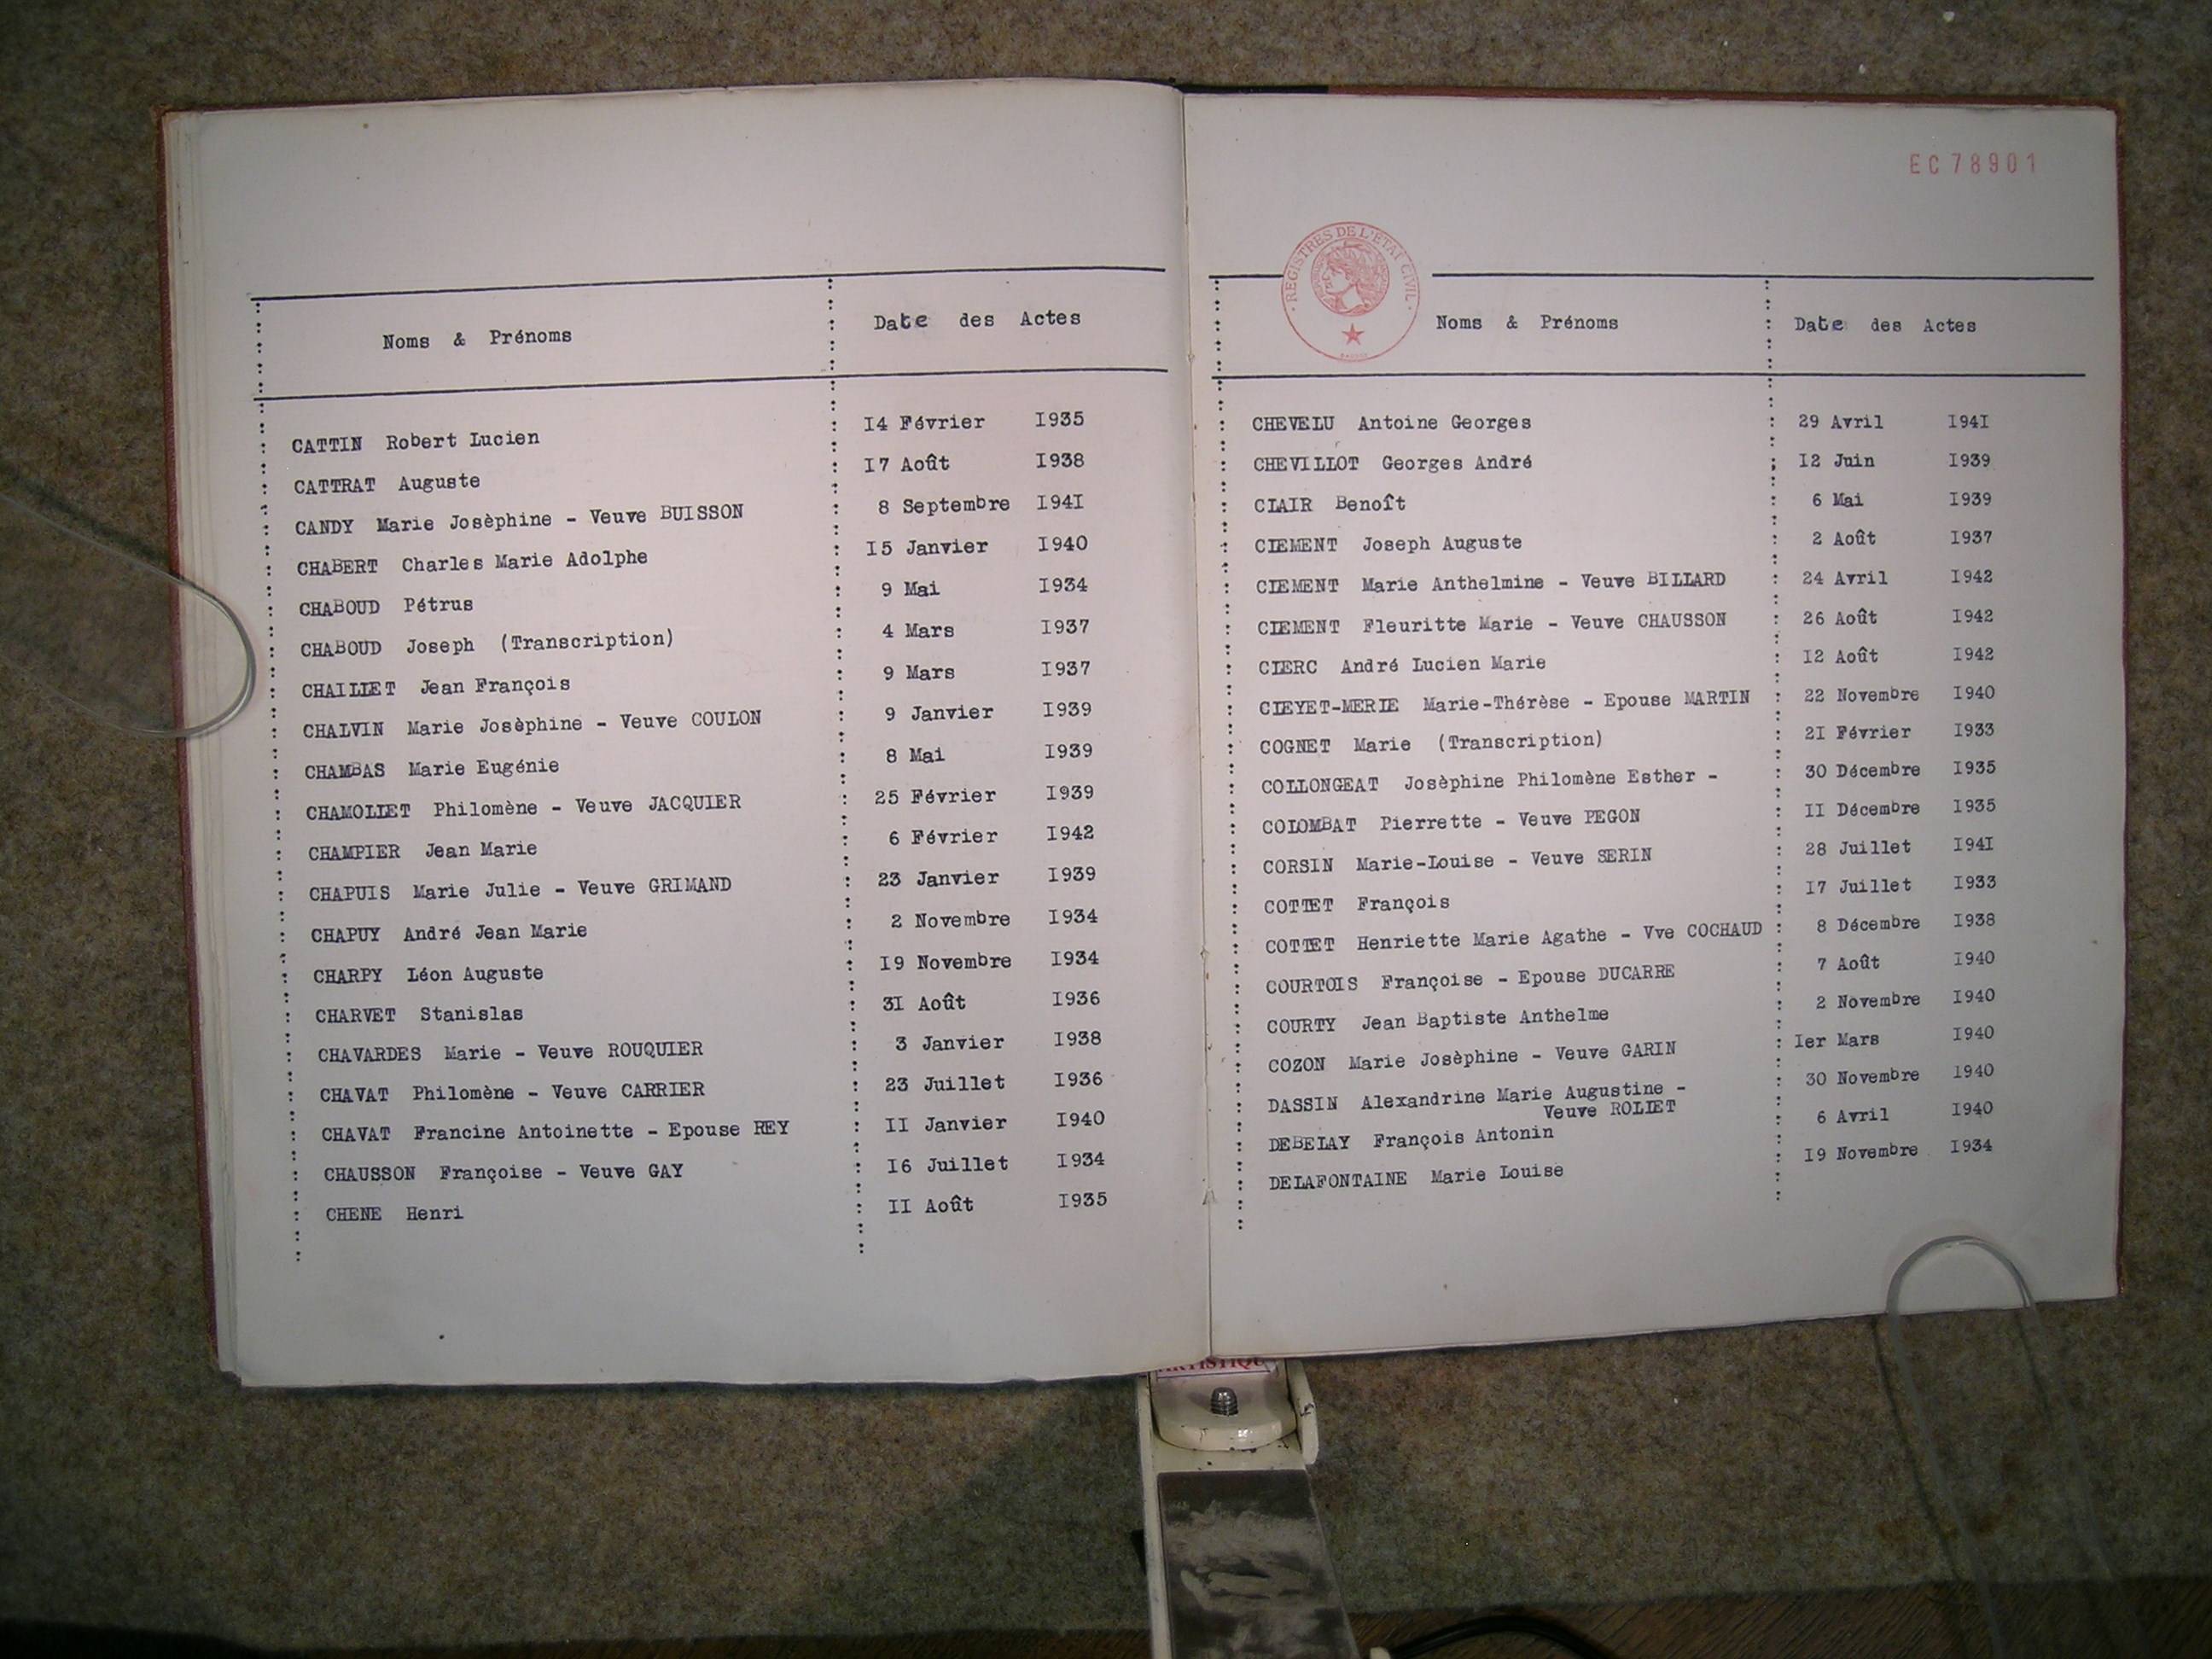 Noms & Prénoms Date des Actes
CATTIN Robert Lucien 14 Février 1935
CATTRAT Auguste 17 Août 1938
CANDY Marie Josèphine - Veuve BUISSON 8 Septembre 1941
CHABERT Charles Marie Adolphe 15 Janvier 1940
CHABOUD Pétrus 9 Mai 1934
CHABOUD Joseph (Transcription) 4 Mars 1937
CHAILLET Jean François 9 Mars 1937
CHALVIN Marie Josèphine - Veuve COULON 9 Janvier 1939
CHAMBAS Marie Eugénie 8 Mai 1939
CHAMOLLET Philomène - Veuve JACQUIER 25 Février 1939
CHAMPIER Jean Marie 6 Février 1942
CHAPUIS Marie Julie - Veuve GRIMAND 23 Janvier 1939
CHAPUY André Jean Marie 2 Novembre 1934
CHARPY Léon Auguste 19 Novembre 1934
CHARVET Stanislas 31 Août 1936
CHAVARDES Marie - Veuve ROUQUIER 3 Janvier 1938
CHAVAT Philomène - Veuve CARRIER 23 Juillet 1936
CHAVAT Francine Antoinette - Epouse REY 11 Janvier 1940
CHAUSSON Françoise - Veuve GAY 16 Juillet 1934
CHENE Henri 11 Août 1935
EC 78901
REGISTRES DE L'ETAT CIVIL
Noms & Prénoms Date des Actes
CHEVELU Antoine Georges 29 Avril 1941
CHEVILLOT Georges André 12 Juin 1939
CLAIR Benoît 6 Mai 1939
CLEMENT Joseph Auguste 2 Août 1937
CLEMENT Marie Anthelmine - Veuve BILLARD 24 Avril 1942
CLEMENT Fleuritte Marie - Veuve CHAUSSON 26 Août 1942
CLERC André Lucien Marie 12 Août 1942
CLEYET-MERLE Marie-Thérèse - Epouse MARTIN 22 Novembre 1940
COGNET Marie (Transcription) 21 Février 1933
COLLONGEAT Josèphine Philomène Esther - 30 Décembre 1935
COLOMBAT Pierrette - Veuve PEGON 11 Décembre 1935
CORSIN Marie-Louise - Veuve SERIN 28 Juillet 1941
COTTET François 17 Juillet 1933
COTTET Henriette Marie Agathe - Vve COCHAUD 8 Décembre 1938
COURTOIS Françoise - Epouse DUCARRE 7 Août 1940
COURTY Jean Baptiste Anthelme 2 Novembre 1940
COZON Marie Josèphine - Veuve GARIN 1er Mars 1940
DASSIN Alexandrine Marie Augustine - 30 Novembre 1940
Veuve ROLLET
DEBELAY François Antonin 6 Avril 1940
DELAFONTAINE Marie Louise 19 Novembre 1934